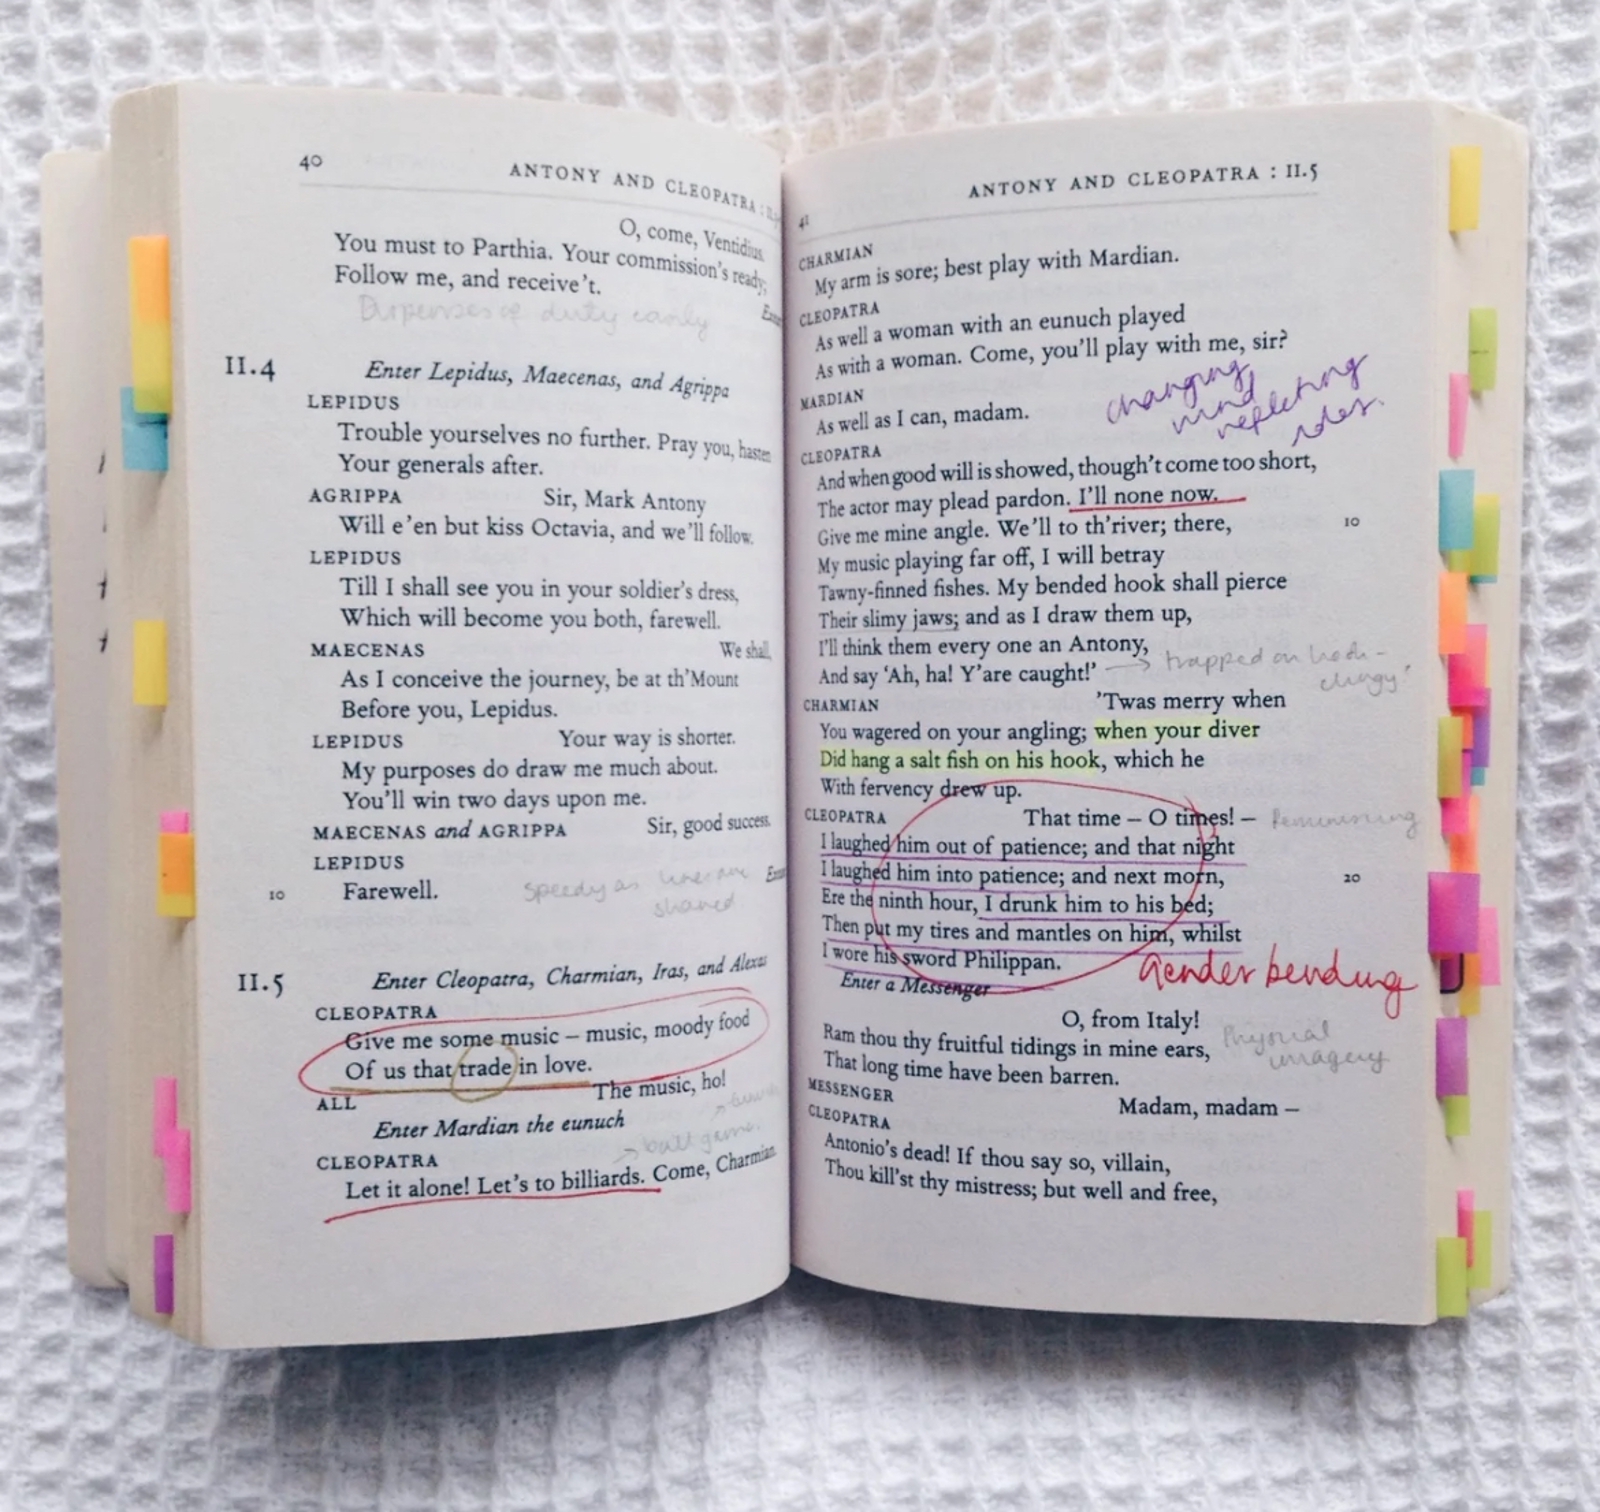 40
ANTONY AND CLEOPATRA :
O, come, Ventidius.
You must to Parthia. Your commission's ready;
Follow me, and receive't.
duty easily
II.4
Enter Lepidus, Maecenas, and Agrippa
LEPIDUS
Trouble yourselves no further. Pray you, hasten
Your generals after.
AGRIPPA Sir, Mark Antony
Will e'en but kiss Octavia, and we'll follow.
LEPIDUS
Till I shall see you in your soldier's dress,
Which will become you both, farewell.
MAECENAS We shall,
As I conceive the journey, be at th'Mount
Before you, Lepidus.
LEPIDUS Your way is shorter.
My purposes do draw me much about.
You'll win two days upon me.
MAECENAS and AGRIPPA Sir, good success.
LEPIDUS
10 Farewell.
speedy as lines are
shared
II.5
Enter Cleopatra, Charmian, Iras, and Alexas
CLEOPATRA
Give me some music – music, moody food
Of us that trade in love.
ALL The music, ho!
Enter Mardian the eunuch
ball game.
CLEOPATRA
Let it alone! Let's to billiards. Come, Charmian.
41
ANTONY AND CLEOPATRA : II.5
CHARMIAN
My arm is sore; best play with Mardian.
CLEOPATRA
As well a woman with an eunuch played
As with a woman. Come, you'll play with me, sir?
changing
mind
reflecting
roles.
MARDIAN
As well as I can, madam.
CLEOPATRA
And when good will is showed, though't come too short,
The actor may plead pardon. I'll none now.
Give me mine angle. We'll to th'river; there, 10
My music playing far off, I will betray
Tawny-finned fishes. My bended hook shall pierce
Their slimy jaws; and as I draw them up,
I'll think them every one an Antony,
And say 'Ah, ha! Y'are caught!' → trapped on hook -
CHARMIAN 'Twas merry when
You wagered on your angling; when your diver
Did hang a salt fish on his hook, which he
With fervency drew up.
CLEOPATRA That time – O times! – Reminiscing
I laughed him out of patience; and that night
I laughed him into patience; and next morn, 20
Ere the ninth hour, I drunk him to his bed;
Then put my tires and mantles on him, whilst
I wore his sword Philippan.
Gender bending
Enter a Messenger
O, from Italy!
Ram thou thy fruitful tidings in mine ears,
That long time have been barren.
Physical
imagery
MESSENGER Madam, madam –
CLEOPATRA
Antonio's dead! If thou say so, villain,
Thou kill'st thy mistress; but well and free,